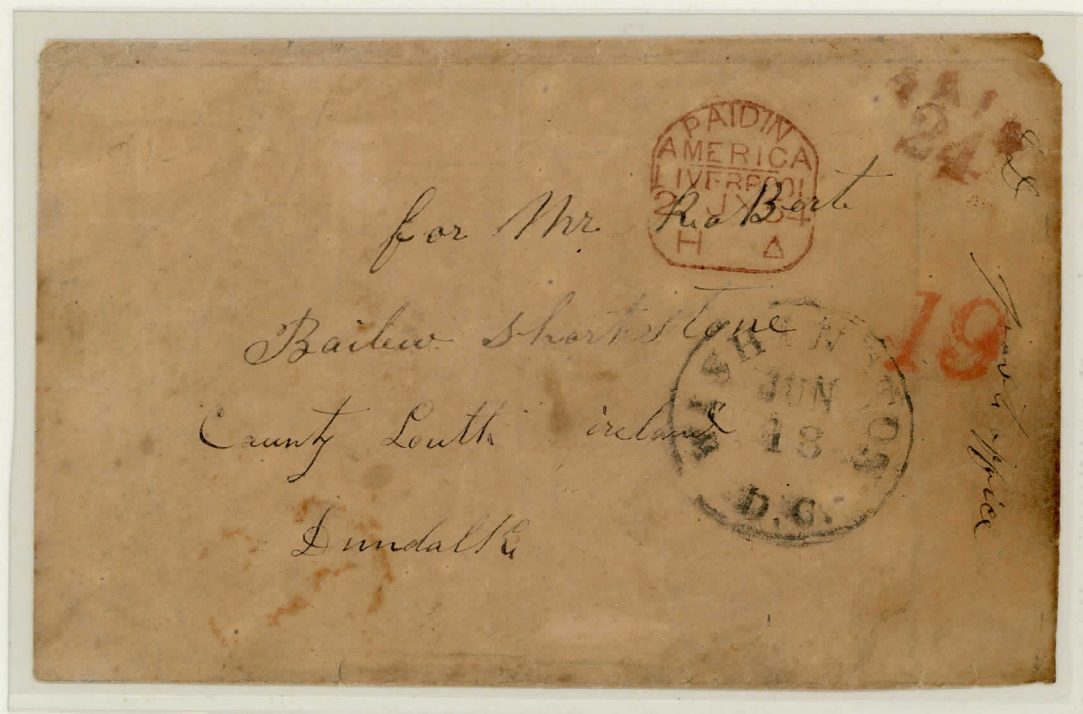 PAID
24
PAID IN
AMERICA
LIVERPOOL
JY 54
H
for Mr. RoBert
Bailew shortstone
County Louth ireland
Dundalk
19
WASHINGTON
JUN
18
D.C.
office